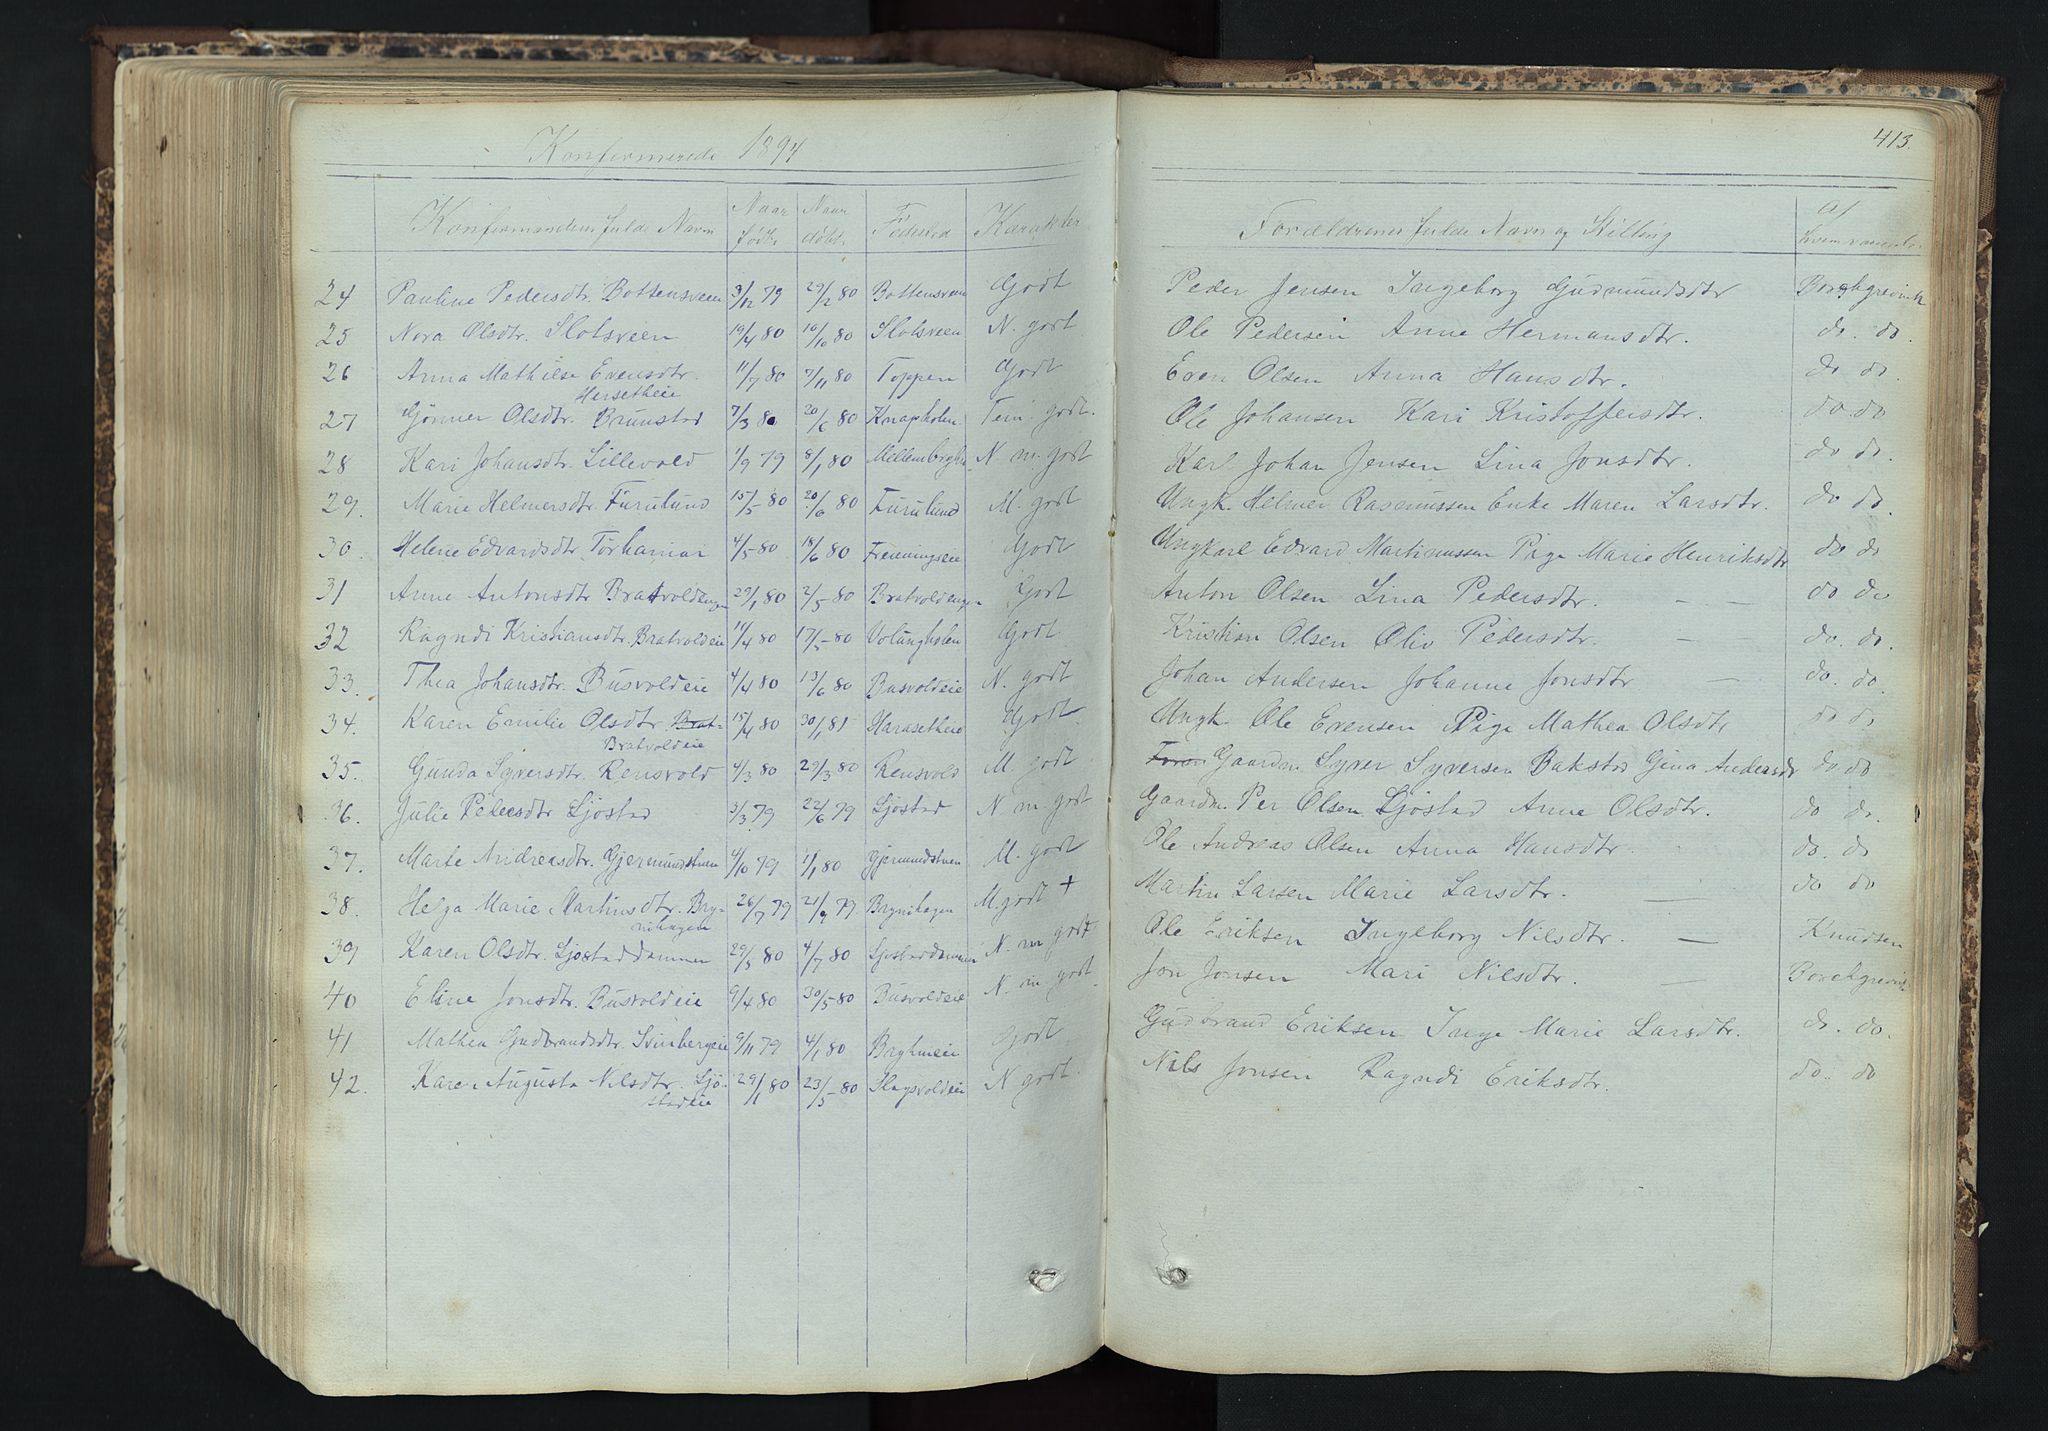 Konfirmerede 1894
413.
Konfirmandens fulde Navn | Naar født | Naar døbt | Fødested | Karakter | Forældrenes fulde Navn og Stilling | Af hvem vaccineret
24 Pauline Pedersdtr. Bottensveen 3/12 79 29/2 80 Bottensveen Godt Peder Jensen Ingeborg Gudmundsdtr Borchgrevink
25 Nora Olsdtr. Slotsveen 19/4 80 10/10 80 Slotsveen N. godt Ole Pedersen Anne Hermansdtr. do. do.
26 Anna Mathilse Evensdtr. 11/7 80 7/11 80 Toppen Godt Even Olsen Anna Hansdtr. do do.
Hersetheie
27 Gönner Olsdtr. Brunstad 7/3 80 20/6 80 Knapholen Tem. godt. Ole Johansen Kari Kristoffersdtr. do do
28 Kari Johansdtr. Lillevold 1/9 79 8/1 80 N m. godt Karl Johan Jensen Lina Jonsdtr. do do.
29. Marie Helmersdtr. Furulund 15/5 80 20/6 80 Furulund M. godt Ungk. Helmer Rasmussen Enke Maren Larsdtr. do do.
30. Helene Edvardsdtr. 4/5 80 18/6 80 Godt Ungkarl Edvard Martinussen Pige Marie Henriksdtr do do
31 Anne Antonsdtr Bratvoldengen 29/1 80 2/5 80 Bratvoldengen Godt Anton Olsen Lina Pedersdtr. — — do do
32 Ragndi Kristiansdtr. Bratvoldeie 11/4 80 17/5 80 Volungholen Godt Kristian Olsen Oliv Pedersdtr. — do. do.
33. Thea Johansdtr. Busvoldeie 4/4 80 13/6 80 Busvoldeie N. godt Johan Andersen Johanne Jonsdtr — do. do.
34. Karen Emilie Olsdtr. Brat- 15/4 80 30/1 81 Harasetheie Godt Ungk. Ole Evensen Pige Mathea Olsdtr do do.
Bratvoldeie
35. Gunda Syversdtr. Rensvold 4/3 80 29/3 80 Rensvold M. godt Gaardm. Syver Syversen Bakstad Gina Andersdtr do do
36. Julie Pedersdtr Ljøstad 3/3 79 22/6 79 Ljøstad N m godt Gaardm. Per Olsen Ljøstad Anne Olsdtr. do do.
37. Marte Andreasdtr. Gjermundstuen 4/10 79 1/1 80 Gjermundstuen M. godt Ole Andreas Olsen Anna Hansdtr. do. do
38. Helga Marie Martinsdtr. Bry- 26/7 79 21/9 79 Brynihagen M. godt + Martin Larsen Marie Larsdtr. — do do
nihagen
39 Karen Olsdtr. Ljøstaddammen 29/5 80 4/7 80 Ljøstaddammen N. m godt Ole Eriksen Ingeborg Nilsdtr. — Knudsen
40 Eline Jonsdtr. Busvoldeie 9/4 80 30/5 80 Busvoldeie N. m godt. Jon Jonsen Mari Nilsdtr. — Borchgrevink
41 Mathea Gudbrandsdtr. Svinbergeie 9/11 79 4/1 80 Godt Gudbrand Eriksen Inge Marie Larsdtr. do. do.
42. Karen Augusta Nilsdtr. Ljø- 29/1 80 23/5 80 Slagsvoldeie N godt. Nils Jonsen Ragndi Eriksdtr. do. do
stadeie